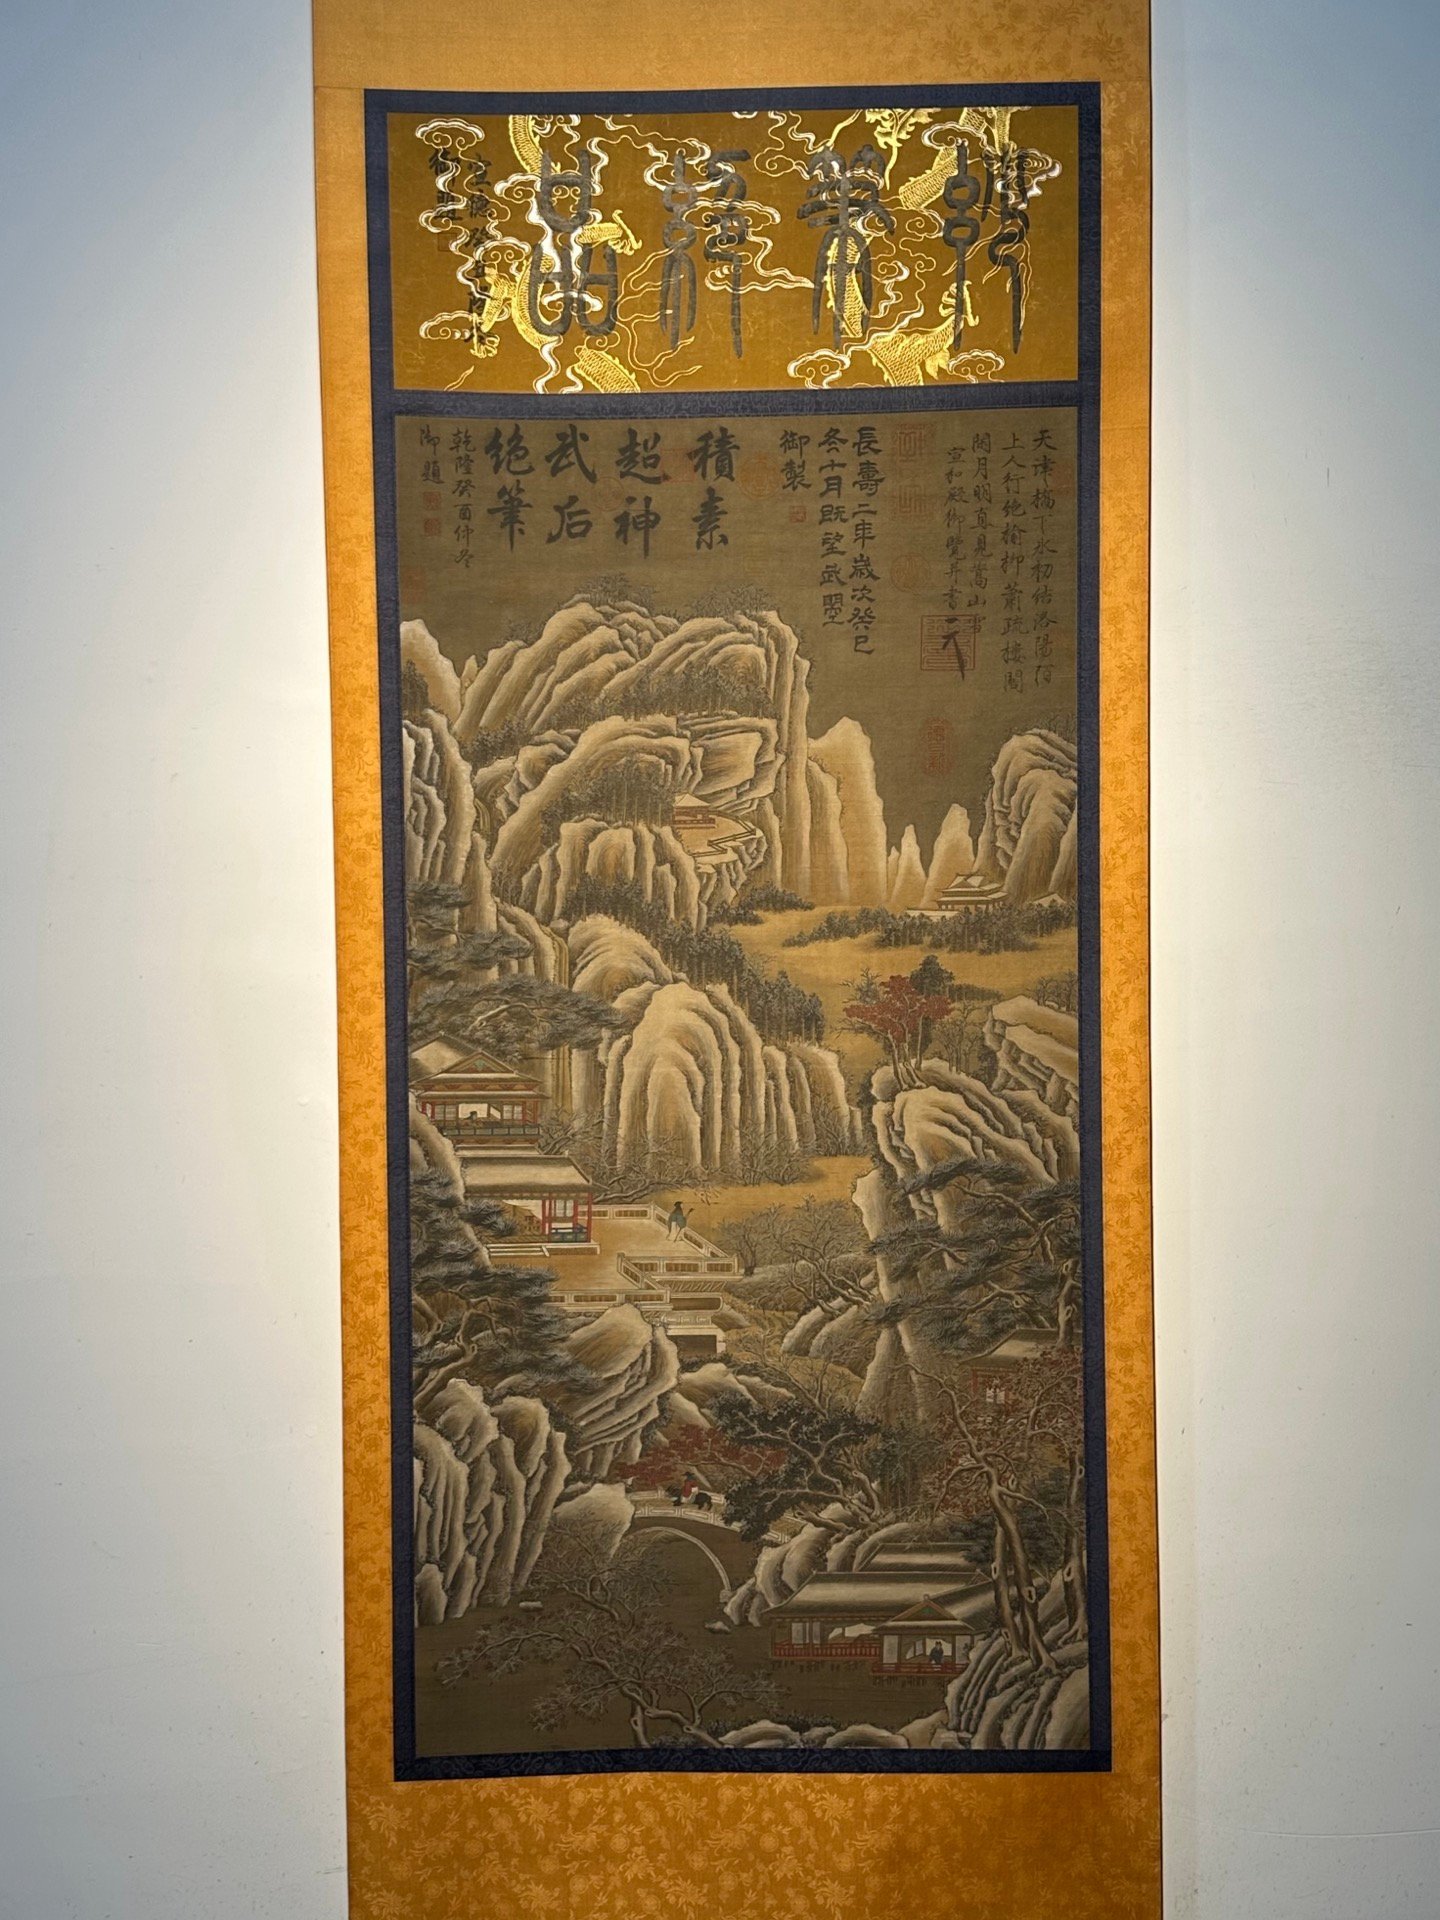 宣德癸丑閏八
御題
天津橋下氷初結洛陽陌
上人行絶榆柳蕭疏樓閣
閑月明直見嵩山雪
宣和殿御覽并書
長壽二年歲次癸巳
冬十月既望武曌
御製
積素
超神
武后
絶筆
乾隆癸酉仲冬
御題